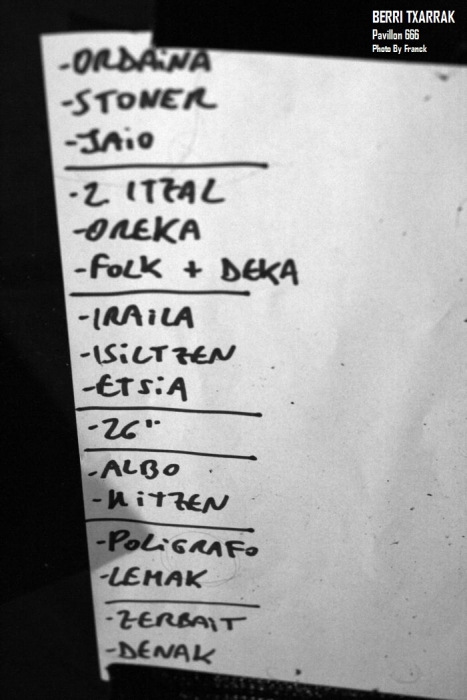 BERRI TXARRAK
Pavillon 666
Photo By Franck
-ORDAiNA
-STONER
-JAiO
-2 ITZAL
-OREKA
-FOLK + DEKA
-IRAiLA
-ISiLTZEN
-ETSiA
-26"
-ALBO
-HiTZEN
-POLiGRAFO
-LEMAK
-ZERBAIT
-DENAK